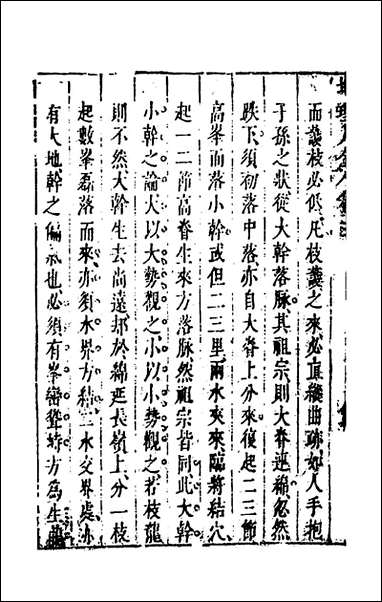 而議枝必低凡枝議之來必頂纏曲踈如人手抱
子孫之狀從大幹落脉其祖宗則大脊連綿忽然
跌下須初落中落亦自大脊上分來後起二三節
高峯而落小幹或但二三里兩水夾來臨將結穴
起一二節高脊生來方落脉然祖宗皆同此大幹
小幹之論大以大勢觀之小以小勢觀之若枝龍
則不然大幹生去尚遠却於綿延長嶺上分一枝
起數峯磊落而來亦須水界方結二水交界處亦
有大地幹之偏氣也必須有峯巒聳峙方為生